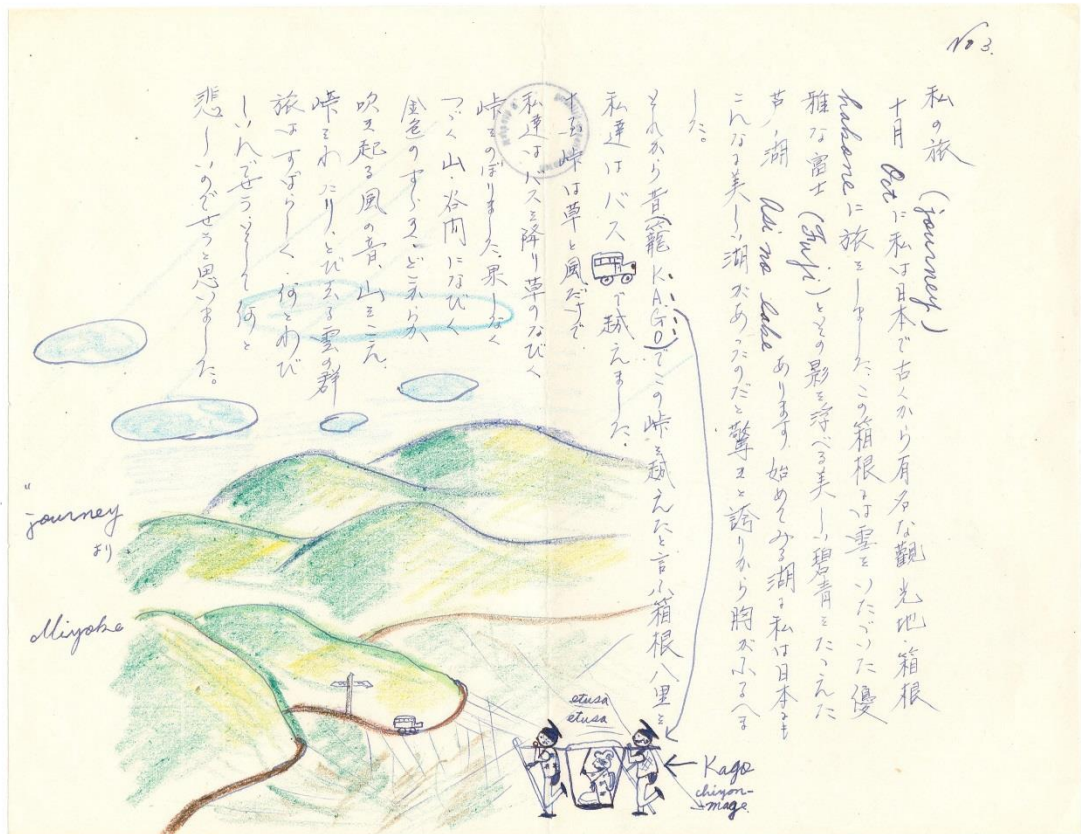 No 3.
私の旅 (journey)
十月 Octに私は日本で古くから有名な観光地箱根
hakoneに旅をしました、この箱根には雪をいただいた優
雅な富士(Fuji)とその影を浮べる美しい碧青をたゝえた
芦ノ湖 Asi no lake あります 始めてみる湖に私は日本にも
こんなに美しい湖があったのだと驚きと誇りから胸がふるへま
した。
それから昔(籠KAGO)でこの峠を越えたと言ふ箱根八里を
私達はバスで越えました、
峠は草と風だけで
私達はバスを降り草のなびく
峠をのぼりました、果しなく
つゞく山・谷間になびく
金色のすゝき、どこからか
吹き起る風の音、山をこえ
峠をわたり、とび去る雲の群
旅はすばらしく、何とわび
しいんでせう、そして何と
悲しいのでせうと思いました。
"journey
より
Miyoko
etusa
etusa
Kago
chiyon-
mage